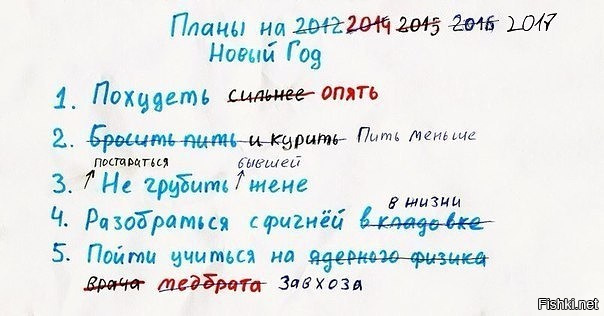 Планы на 2012 2014 2015 2016 2017
Новый Год
1. Похудеть сильнее опять
2. Бросить пить и курить Пить меньше
постараться бывшей
3. Не грубить жене
в жизни
4. Разобраться с фигнёй в кладовке
5. Пойти учиться на ядерного физика
врача медбрата Завхоза
Fishki.net